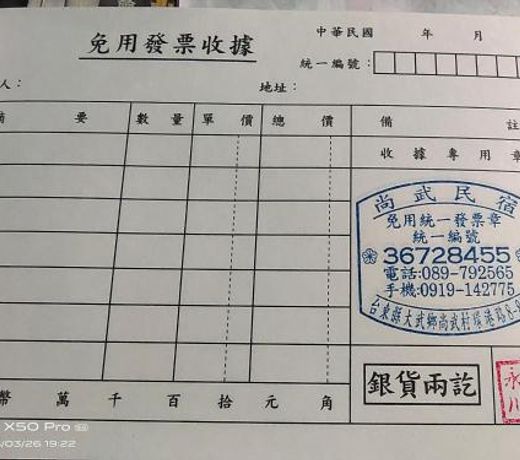 免用發票收據
中華民國 年 月
統一編號：
人： 地址：
要 數量 單價 總價 備註
收據專用章
尚武民宿
免用統一發票章
統一編號
36728455
電話:089-792565
手機:0919-142775
台東縣大武鄉尚武村環港路8-
銀貨兩訖
幣 萬 千 百 拾 元 角
永
川
X50 Pro
/03/26 19:22